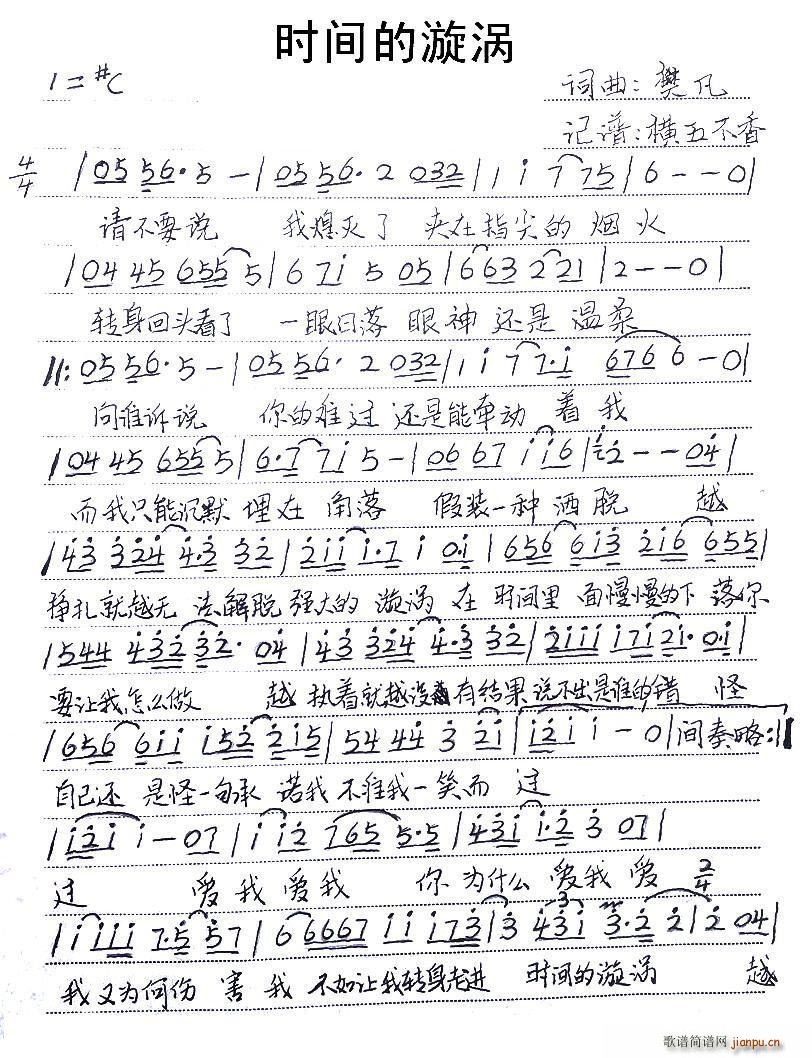 时间的漩涡
1=#C 词曲:樊凡
记谱:横五不香
4/4 |05 56·5 -|05 56·2 032|1 i 7 775|6 - - 0|
请不要说 我熄灭了 夹在指尖的 烟火
|04 45 6555|6 7i 5 05|663 221|2 - - 0|
转身回头看了 一眼日落 眼神 还是 温柔
‖:05 56·5 -|05 56·2 032|1 i 7 7·i 6766 - 0|
向谁诉说 你的难过 还是能牵动 着我
|04 45 6555|6·7 7i 5 -|06 67 i i i6|2 - - 04|
而我只能沉默 埋在 角落 假装一种 洒脱 越
|43 324 4·3 32|2ii i·7 i 0·i|656 6i3 2i6 655|
挣扎就越无 法解脱 强大的 漩涡 在 时间里 面慢慢的下 落你
|544 432 32· 04|43 324 4·3 32|2iii i7i 2i· 0i|
要让我怎么做 越 执着就越没有结果 说不出是谁的错 怪
|656 6ii i52 2i5|54 44 3 2i|i2i i - 0|间奏略:‖
自己还 是怪一句承 诺我 不难我一笑而 过
|i2i i - 07|i i2 765 5·5|43i i·2 3 07|
过 爱我爱我 你为什么 爱我 爱 2/4
|i i iii 7·5 57|6 6667 i i i73|3 43i 3·2 2|2 04|
我又为何伤 害 我 不如让我转身走进 时间的漩涡 越
歌谱简谱网 jianpu.cn